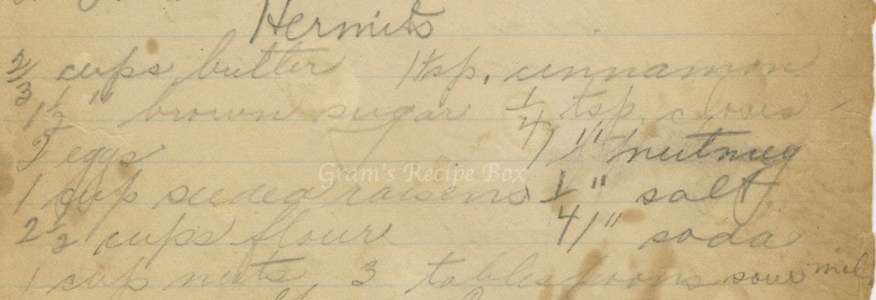 Hermits
2/3 cups butter 1 tsp. cinnamon
1 1/2 " brown sugar 1/4 tsp. cloves
2 eggs 1 " nutmeg
1 cup seeded raisens 1/4 " salt
2 1/2 cups flour 1 " soda
1 cup nuts, 3 tablespoons sour milk
Gram's Recipe Box